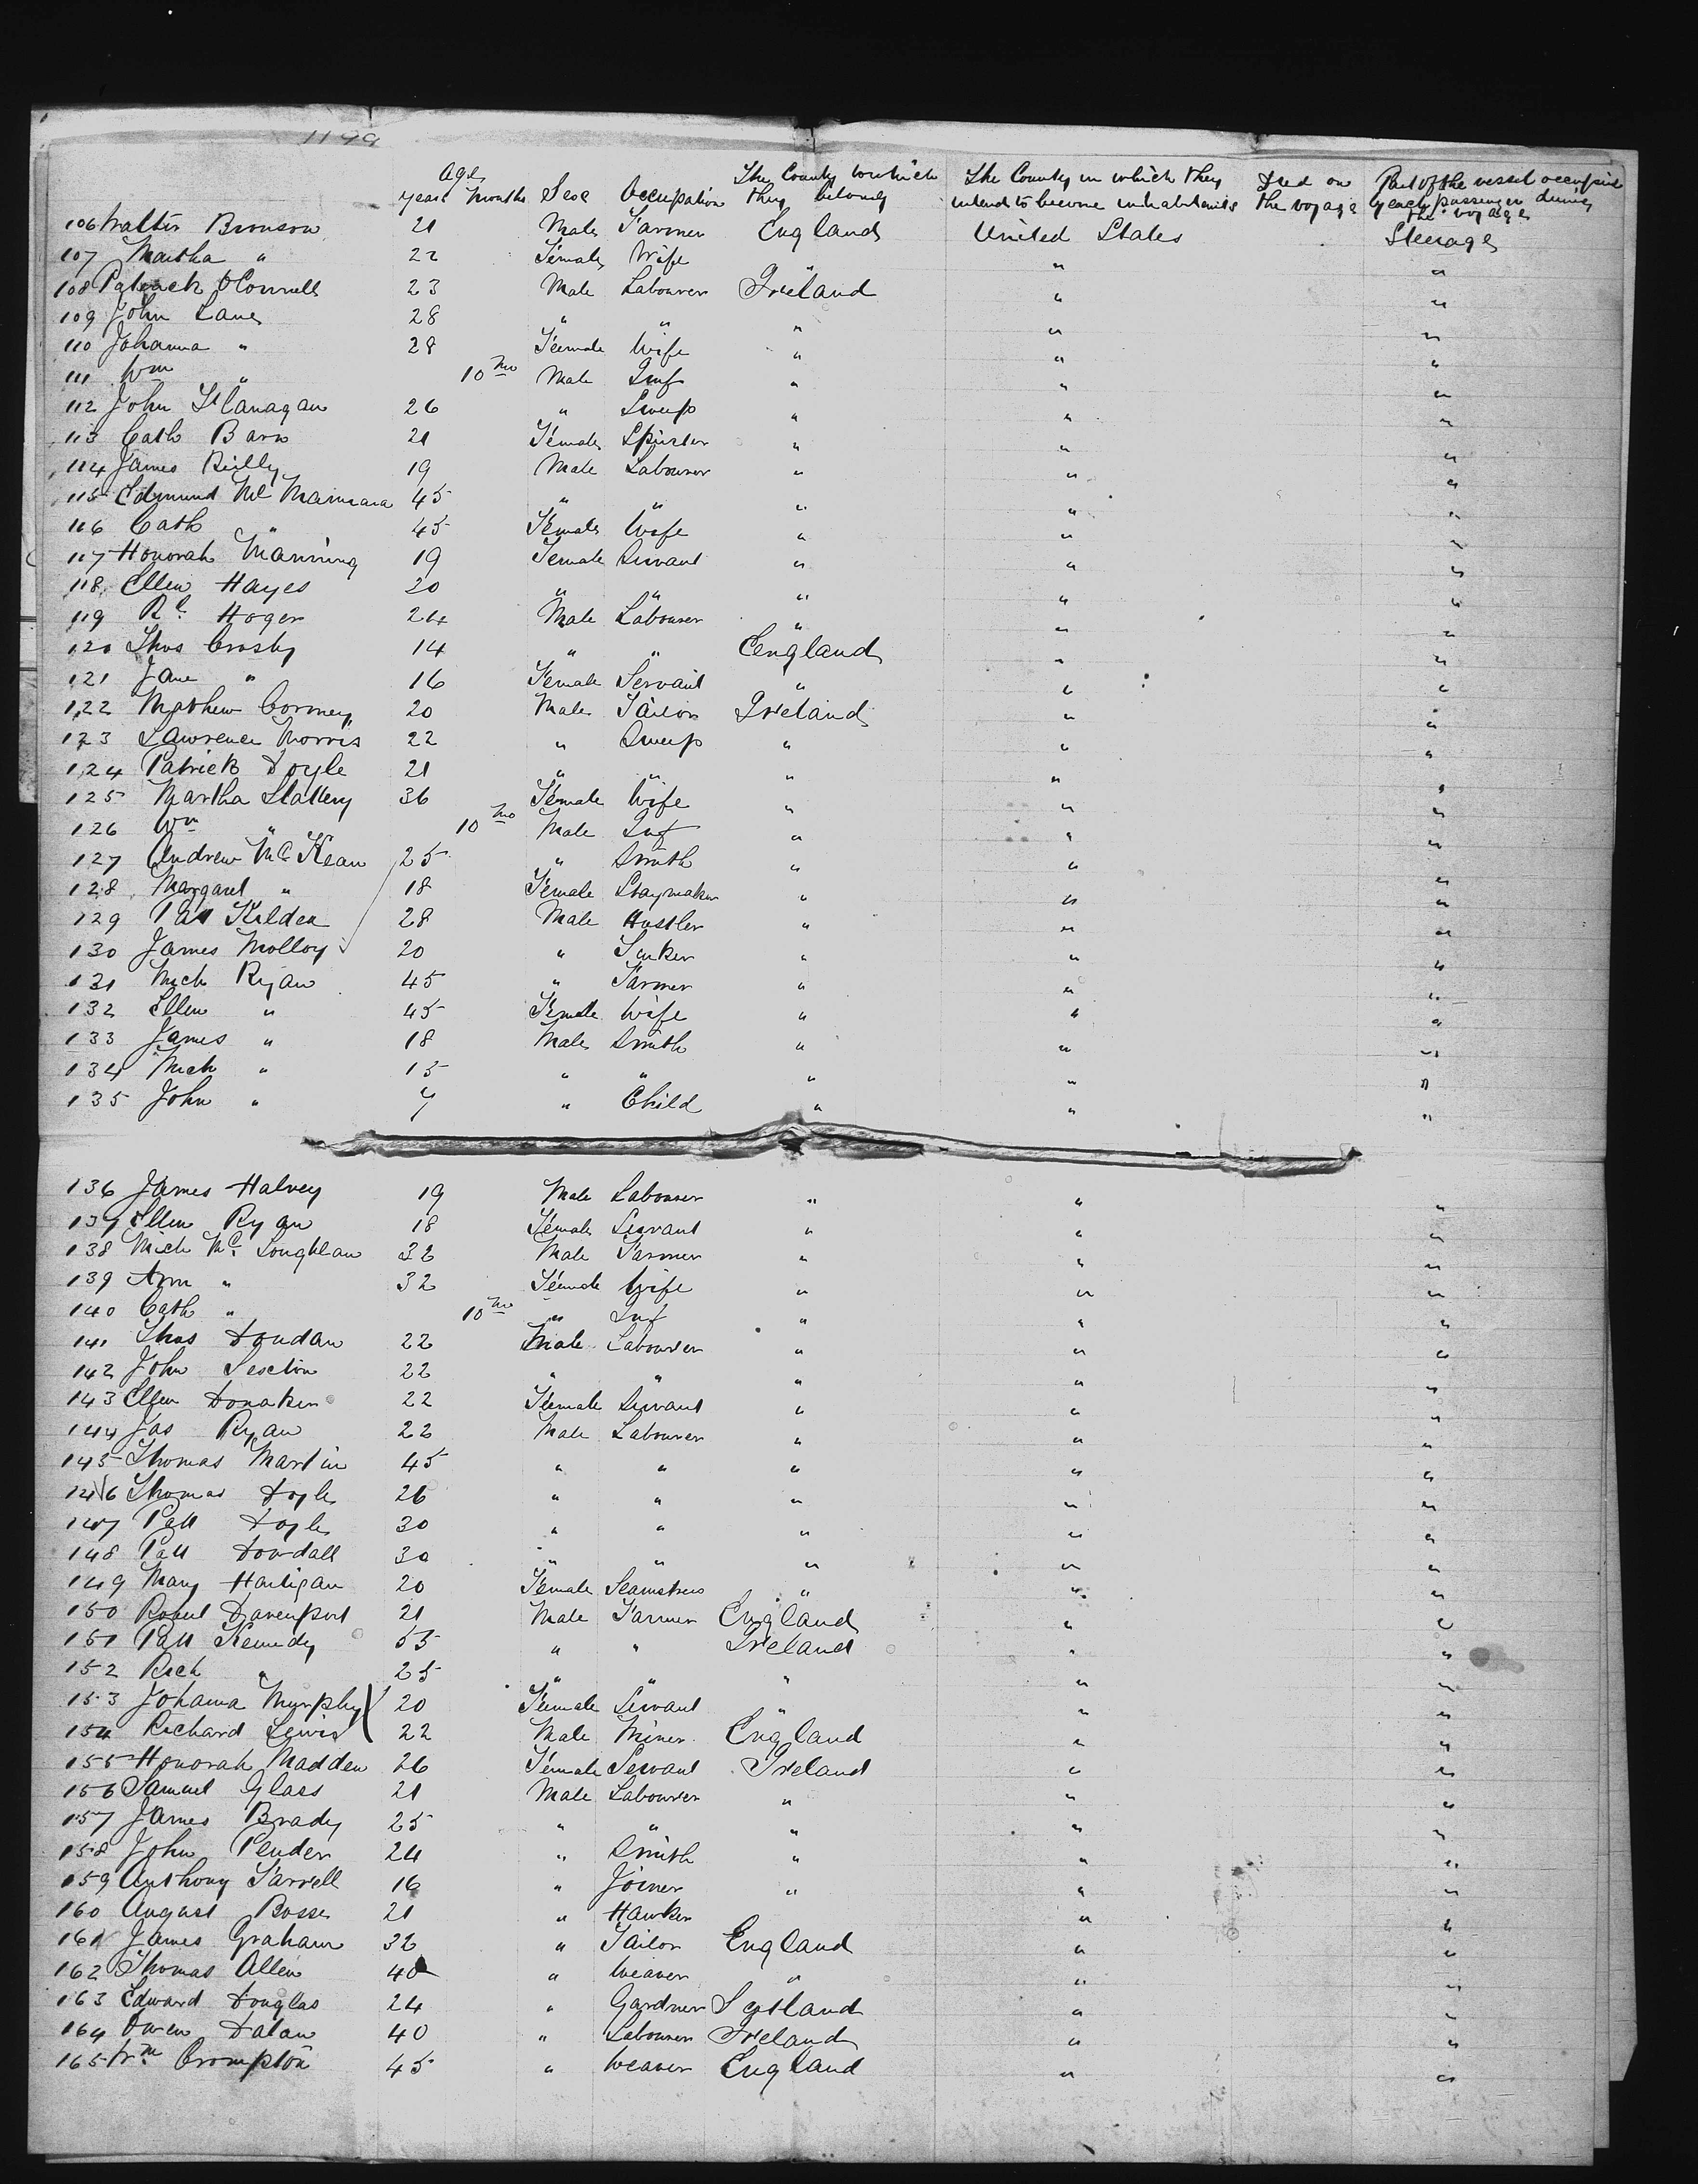 1199
Age
years months Sex Occupation The County to which they belong The County in which they intend to become inhabitants Died on the voyage Part of the vessel occupied by each passenger during the voyage
106 Walter Bronson 21 Male Farmer England United States Steerage
107 Martha " 22 Female Wife " " "
108 Patrick O'Connell 23 Male Labourer Ireland " "
109 John Lane 28 " " " " "
110 Johanna " 28 Female Wife " " "
111 Wm " 10 mo Male Inf " " "
112 John Flanagan 26 " Sweep " " "
113 Cath Barn 21 Female Spinster " " "
114 James Reilly 19 Male Labourer " " "
115 Edmund Mc Mamara 45 " " " " "
116 Cath " 45 Female Wife " " "
117 Honorah Manning 19 Female Servant " " "
118 Ellen Hayes 20 " " " " "
119 Rd. Hogen 24 Male Labourer " " "
120 Thos Crosby 14 " " England " "
121 Jane " 16 Female Servant " " "
122 Mathew Cormey 20 Male Tailor Ireland " "
123 Lawrence Morris 22 " Sweep " " "
124 Patrick Doyle 21 " " " " "
125 Martha Slattery 36 Female Wife " " "
126 Wm " 10 mo Male Inf " " "
127 Andrew McKean 25 " Smith " " "
128 Margaret " 18 Female Staymaker " " "
129 Pat Kildea 28 Male Hostler " " "
130 James Molloy 20 " Sinker " " "
131 Mich Ryan 45 " Farmer " " "
132 Ellen " 45 Female Wife " " "
133 James " 18 Male Smith " " "
134 Mich " 15 " " " " "
135 John " 7 " Child " " "
136 James Halvey 19 Male Labourer " " "
137 Ellen Ryan 18 Female Servant " " "
138 Mich Mc Loughlan 32 Male Farmer " " "
139 Ann " 32 Female Wife " " "
140 Cath " 10 mo " Inf " " "
141 Thos Doudan 22 Male Labourer " " "
142 John Sexton 22 " " " " "
143 Ellen Donaken 22 Female Servant " " "
144 Jas Ryan 22 Male Labourer " " "
145 Thomas Martin 45 " " " " "
146 Thomas Doyle 26 " " " " "
147 Patt Doyle 30 " " " " "
148 Patt Dowdall 30 " " " " "
149 Mary Hartigan 20 Female Seamstress " " "
150 Robert Davenport 21 Male Farmer England " "
151 Patt Kennedy 55 " " Ireland " "
152 Rich " 25 " " " " "
153 Johanna Murphy 20 Female Servant " " "
154 Richard Lewis 22 Male Miner England " "
155 Honorah Madden 26 Female Servant Ireland " "
156 Samuel Glass 21 Male Labourer " " "
157 James Brady 25 " " " " "
158 John Pender 24 " Smith " " "
159 Anthony Farrell 16 " Joiner " " "
160 August Bosse 21 " Hawker " "
161 James Graham 32 " Tailor England " "
162 Thomas Allen 40 " Weaver " " "
163 Edward Douglas 24 " Gardner Scotland " "
164 Owen Dalan 40 " Labourer Ireland " "
165 Wm Crompton 45 " Weaver England " "